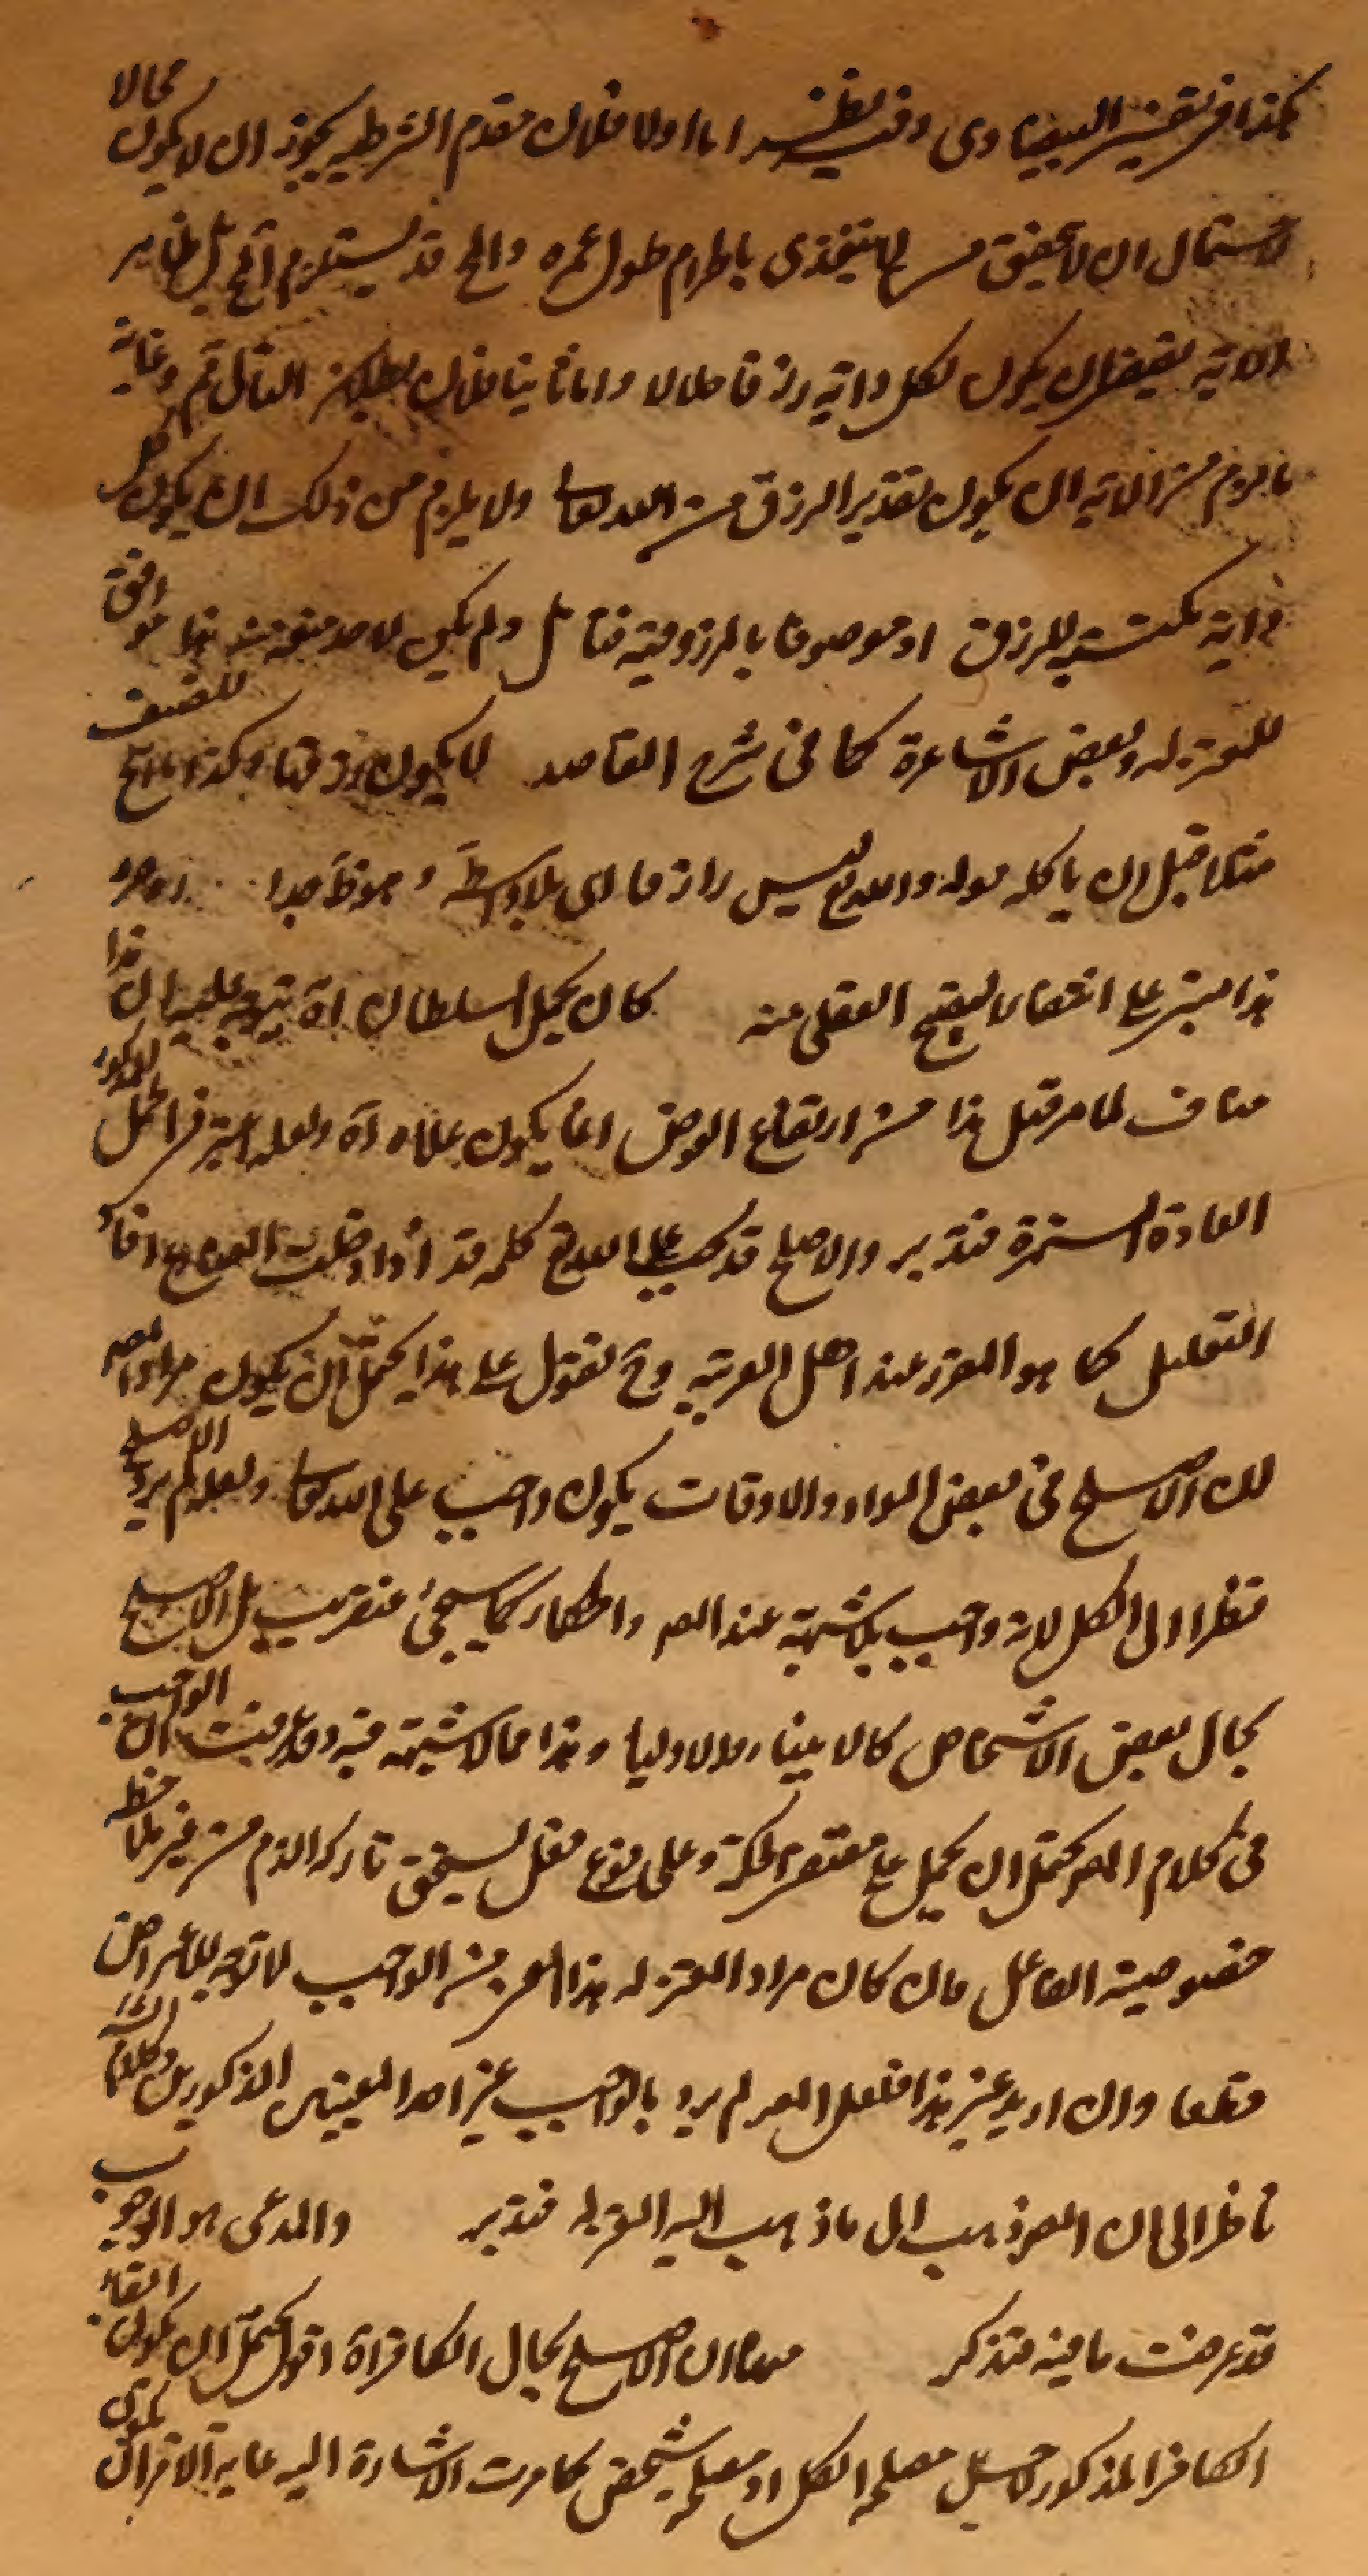 هكذا في تفسير البيضاوي وفيه نظر اما اولا فلان مقدم الشرطية يجوز ان لا يكون محالا
لاحتمال ان لا يتحقق من لا يتغذى بالحرام طول عمره والمح قد يستلزم المح بل ظاهر
الاية يقتضي ان يكون لكل دابة رزقا حلالا واما ثانيا فلان بطلان التالي مم وغاية
ما يلزم من الاية ان يكون تقدير الرزق من الله تعالى ولا يلزم من ذلك ان يكون كل
دابة مكتسبة للرزق او موصوفا بالمرزوقية فتامل ولم يكن لاحد منعه منه هذا موافق
للمعتزلة وبعض الاشاعرة كما في شرح المقاصد لا يكون رزقا وكذا ما ابيح للضيف
مثلا قبل ان ياكله قوله والله تع ليس رازقا اي بلا واسطة وهو خطأ جدا
هذا مبني على انتفاء القبح العقلي منه كان يحيل السلطان اه يتجه عليه ان هذا
مناف لما مر قبل هذا من ارتفاع العوض انما يكون غلاء اه ولعله اعتبر في المحل المذكور
العادة المستمرة فتدبر والاصلح قد يجب على الله تع كلمة قد اذا دخلت المضارع افاد
التقليل كما هو المقرر عند اهل العربية وح نقول على هذا يحتمل ان يكون مراد المصه
ان الاصلح في بعض المواد والاوقات يكون واجب على الله تعالى ولعله لم يرد الاصلح
نظرا الى الكل لانه واجب بلا شبهة عند المصه والحكماء كما سيجئ عنقريب بل الاصلح
بحال بعض الاشخاص كالانبياء والاوليا وهذا مما لا شبهة فيه وقد عرفت ان الواجب
في كلام المصه يحتمل ان يحمل على مقتضى الحكمة وعلى نوع فعل يستحق تاركه الذم من غير ملاحظة
خصوصية الفاعل فان كان مراد المعتزلة هذا المعنى من الواجب لا توجه للاعتراض
قطعا وان اريد غير هذا فلعل المصه لم يرد بالواجب غير احد المعنيين المذكورين وكلام الشه
ناظر الى ان المصه ذهب الى ما ذهب اليه المعتزلة فتدبر والمدعى هو الوجوب
قد عرفت ما فيه فتذكر ان الاصلح بحال الكافر اه اقول يحتمل ان يكون القاء
الكافر المذكور لاجل مصلحة الكل او مصلحة شخص كما مرت الاشارة اليه غاية الامر ان يكون